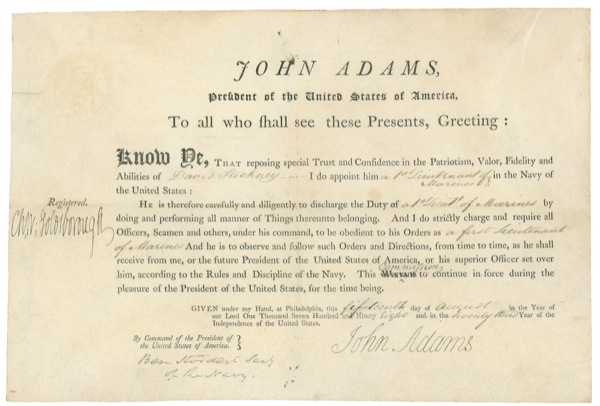 JOHN ADAMS,
President of the United States of America,
To all who shall see these Presents, Greeting:
Know Ye, THAT reposing special Trust and Confidence in the Patriotism, Valor, Fidelity and
Abilities of David Stickney I do appoint him a 1st Lieutenant of Marines in the Navy of
the United States:
HE is therefore carefully and diligently to discharge the Duty of a 1st Lieut of Marines by
doing and performing all manner of Things thereunto belonging. And I do strictly charge and require all
Officers, Seamen and others, under his command, to be obedient to his Orders as a first lieutenant
of Marines And he is to observe and follow such Orders and Directions, from time to time, as he shall
receive from me, or the future President of the United States of America, or his superior Officer set over
him, according to the Rules and Discipline of the Navy. This Commission to continue in force during the
pleasure of the President of the United States, for the time being.
GIVEN under my Hand, at Philadelphia, this fifteenth day of August in the Year of
our Lord One Thousand Seven Hundred and Ninety Eight and in the twenty third Year of the
Independence of the United States.
John Adams
By Command of the President of
the United States of America.
Ben Stoddert Secy
of the Navy.
Registered.
Chs. W. Goldsborough